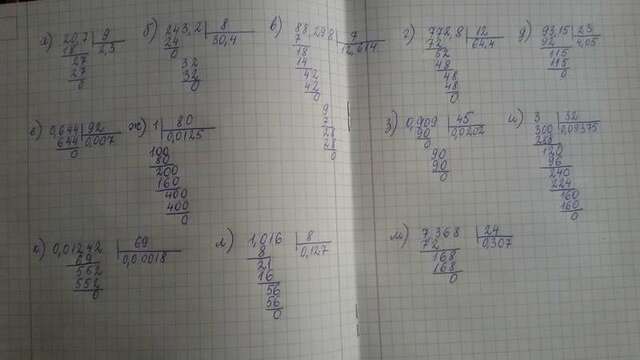 а) 20,7 | 9
18 | 2,3
27
27
0
б) 243,2 | 8
24 | 30,4
32
32
0
в) 88,298 | 7
18 | 12,614
14
42
42
0
9
7
28
28
0
г) 772,8 | 12
72 | 64,4
52
48
48
48
0
д) 93,15 | 23
92 | 4,05
115
115
0
е) 0,644 | 92
644 | 0,007
0
ж) 1 | 80
100 | 0,0125
80
200
160
400
400
0
з) 0,909 | 45
90 | 0,0202
90
90
0
и) 3 | 32
300 | 0,09375
120
96
240
224
160
160
0
к) 0,01242 | 69
69 | 0,00018
552
552
0
л) 1,016 | 8
8 | 0,127
21
16
56
56
0
м) 7,368 | 24
72 | 0,307
168
168
0